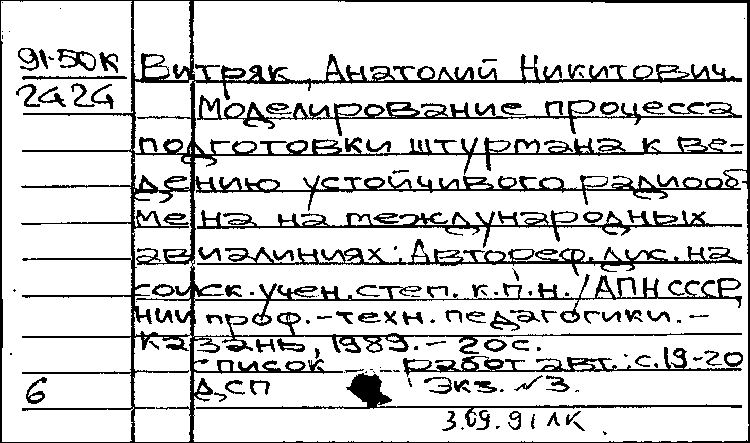 91-50К Витряк, Анатолий Никитович.
2424 Моделирование процесса
подготовки штурмана к ве-
дению устойчивого радиооб-
мена на международных
авиалиниях: Автореф. дис. на
соиск. учен. степ. к.п.н. / АПН СССР,
НИИ проф.-техн. педагогики. -
Казань, 1989. - 20с.
Список работ авт.: с.19-20
6 ДСП Экз. №3.
3.09.91 ЛК